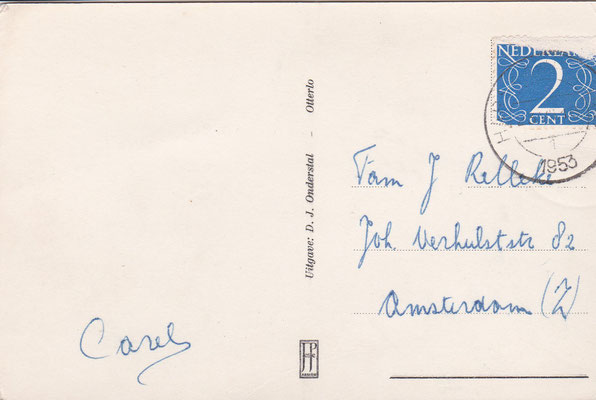 NEDERLAND
2
CENT
1953
Uitgave: D. J. Onderstal – Otterlo
Fam J Relleke
Joh. Verhulststr 82
Amsterdam (Z)
Carel